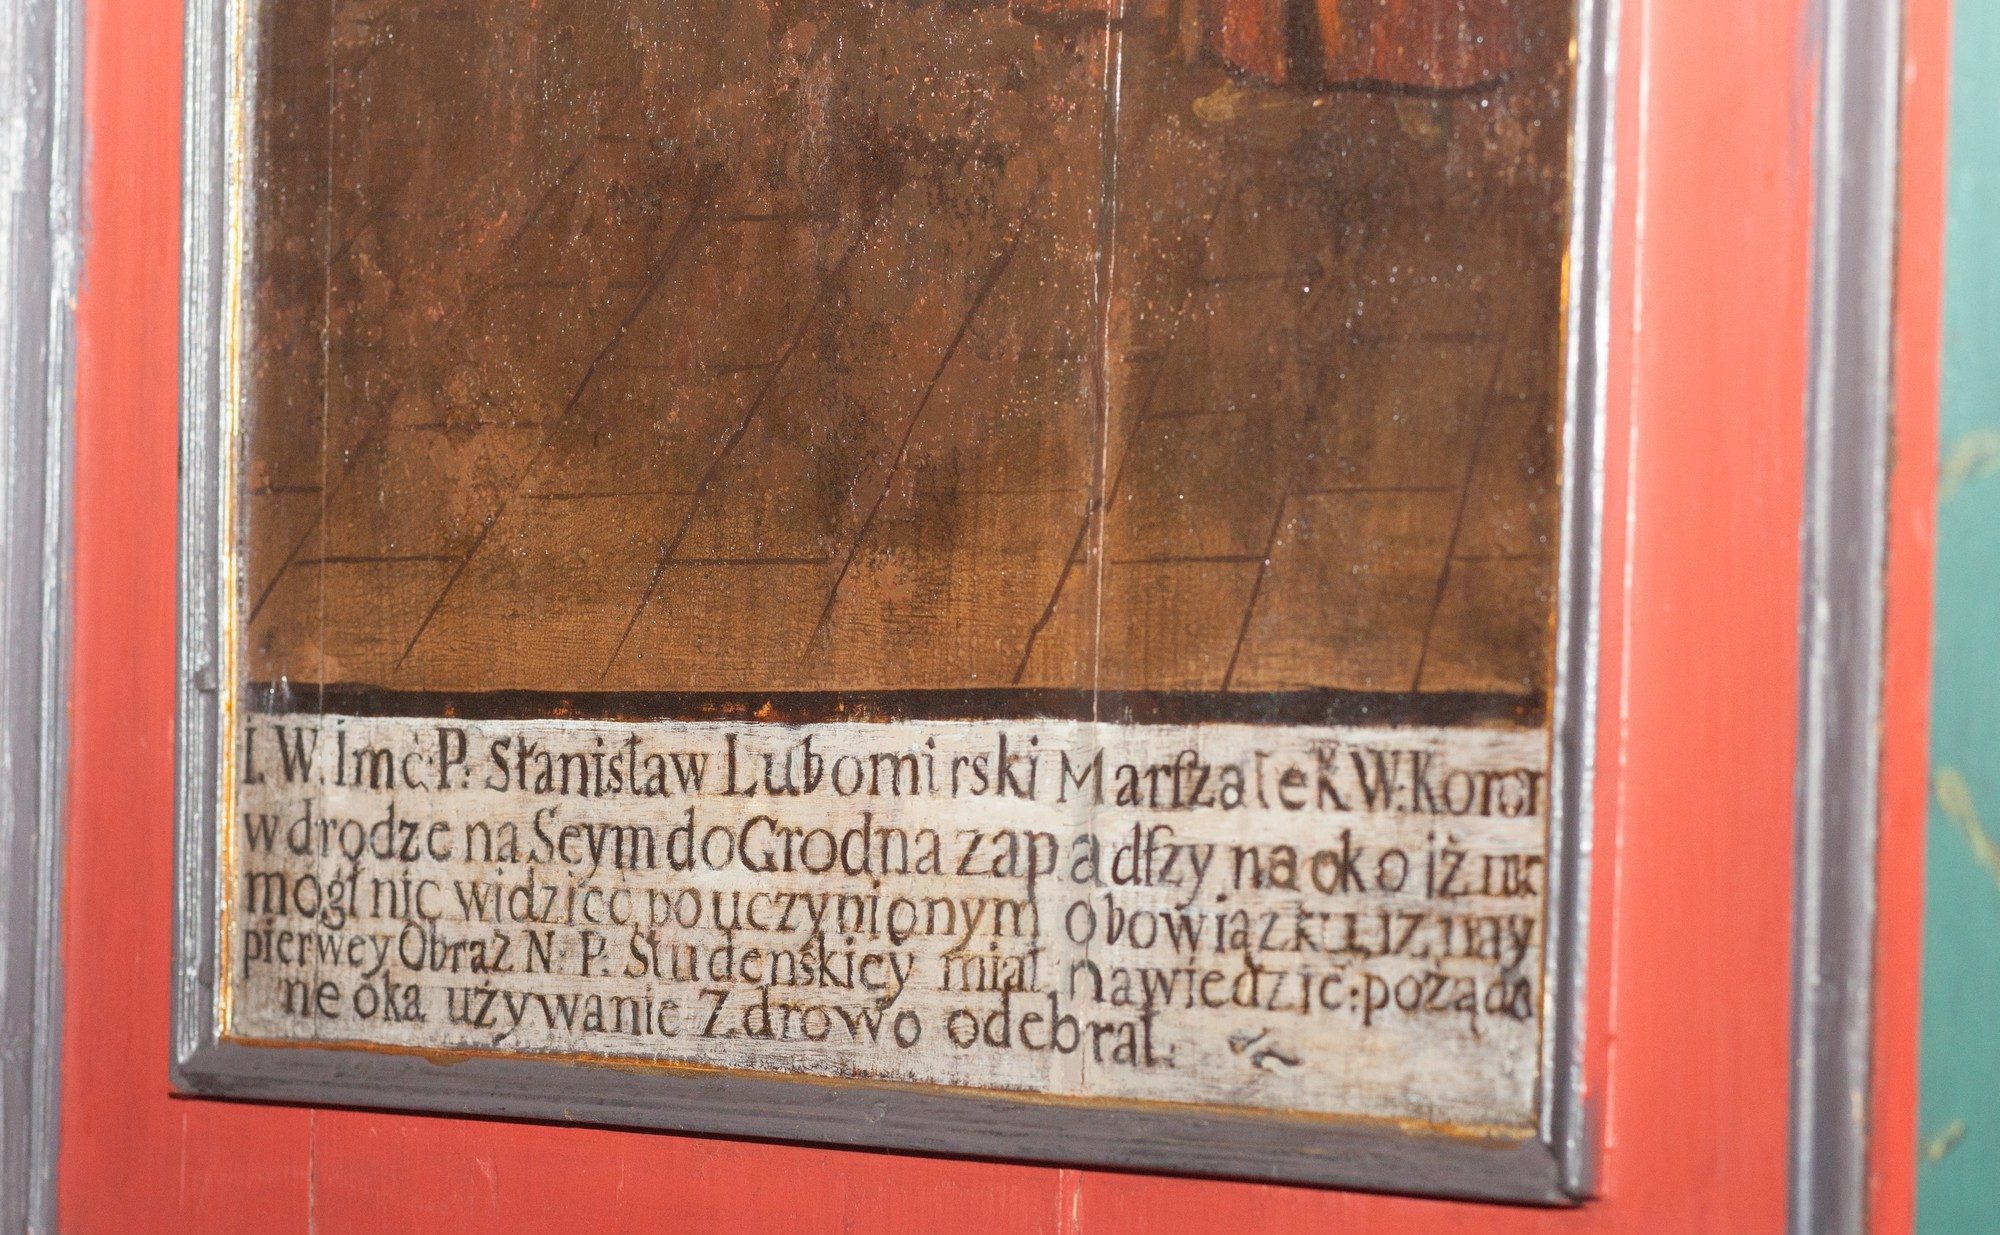 I. W. Imć: P: Stanisław Lubomirski Marſzałek W: Koron
w drodze na Seym do Grodna zapadſzy na oko iż nie
mógł nic widzieć po uczynionym obowiązku, iż nay
pierwey Obraz N: P: Studeńskiey miał nawiedzić: pożąda
ne oka używanie Zdrowo odebrał.